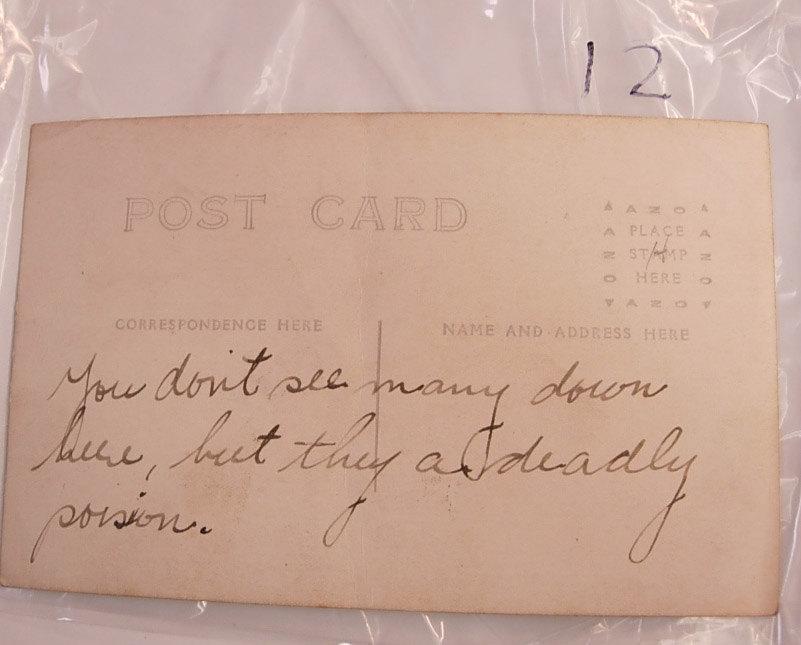 12
POST CARD
AZO
PLACE
STAMP
HERE
AZO
CORRESPONDENCE HERE
NAME AND ADDRESS HERE
You don't see many down
here, but they deadly
poison.